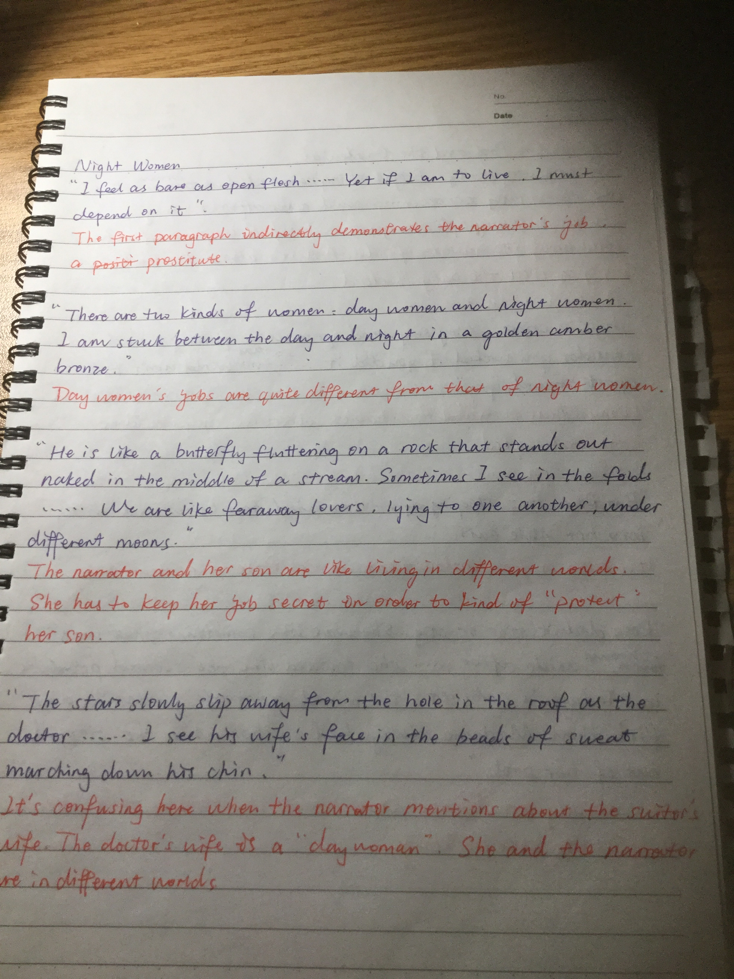 No.
Date
Night Women
"I feel as bare as open flesh ...... Yet if I am to live, I must
depend on it".
The first paragraph indirectly demonstrates the narrator's job,
a positi prostitute.
"There are two kinds of women: day women and night women.
I am stuck between the day and night in a golden amber
bronze."
Day women's jobs are quite different from that of night women.
"He is like a butterfly fluttering on a rock that stands out
naked in the middle of a stream. Sometimes I see in the folds
...... We are like faraway lovers, lying to one another, under
different moons."
The narrator and her son are like living in different worlds.
She has to keep her job secret in order to kind of "protect"
her son.
"The stars slowly slip away from the hole in the roof as the
doctor ...... I see his wife's face in the beads of sweat
marching down his chin."
It's confusing here when the narrator mentions about the suitor's
wife. The doctor's wife is a "day woman". She and the narrator
are in different worlds